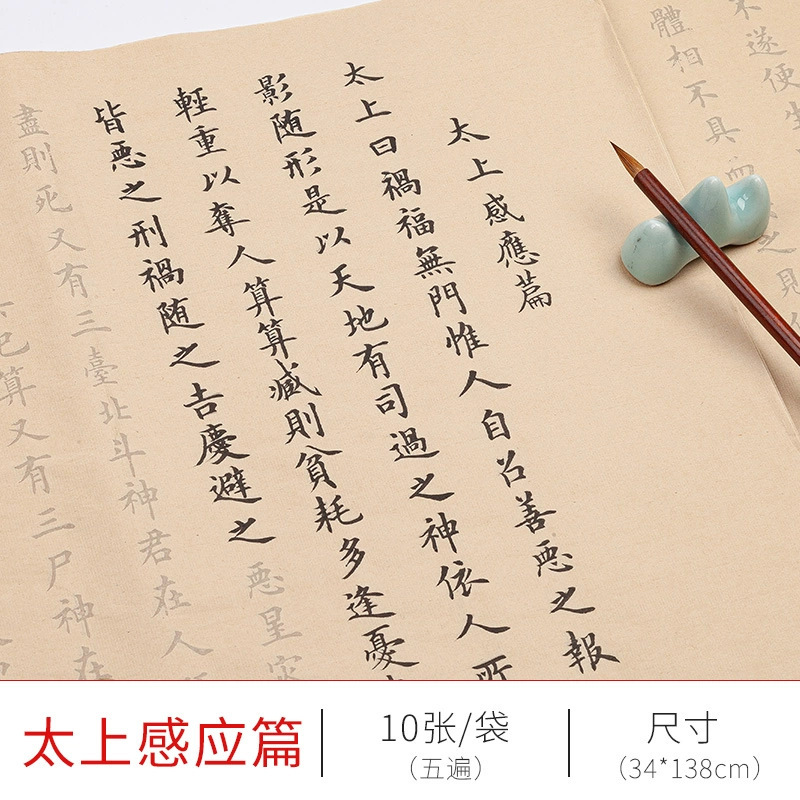 不遂便生
之則
體相不具
太上感應篇
太上曰禍福無門惟人自召善惡之報
影随形是以天地有司過之神依人所
輕重以奪人算算减則貧耗多逢憂
皆惡之刑禍随之吉慶避之惡星灾
盡則死又有三臺北斗神君在人
算又有三尸神在
太上感应篇
10张/袋
（五遍）
尺寸
（34*138cm）